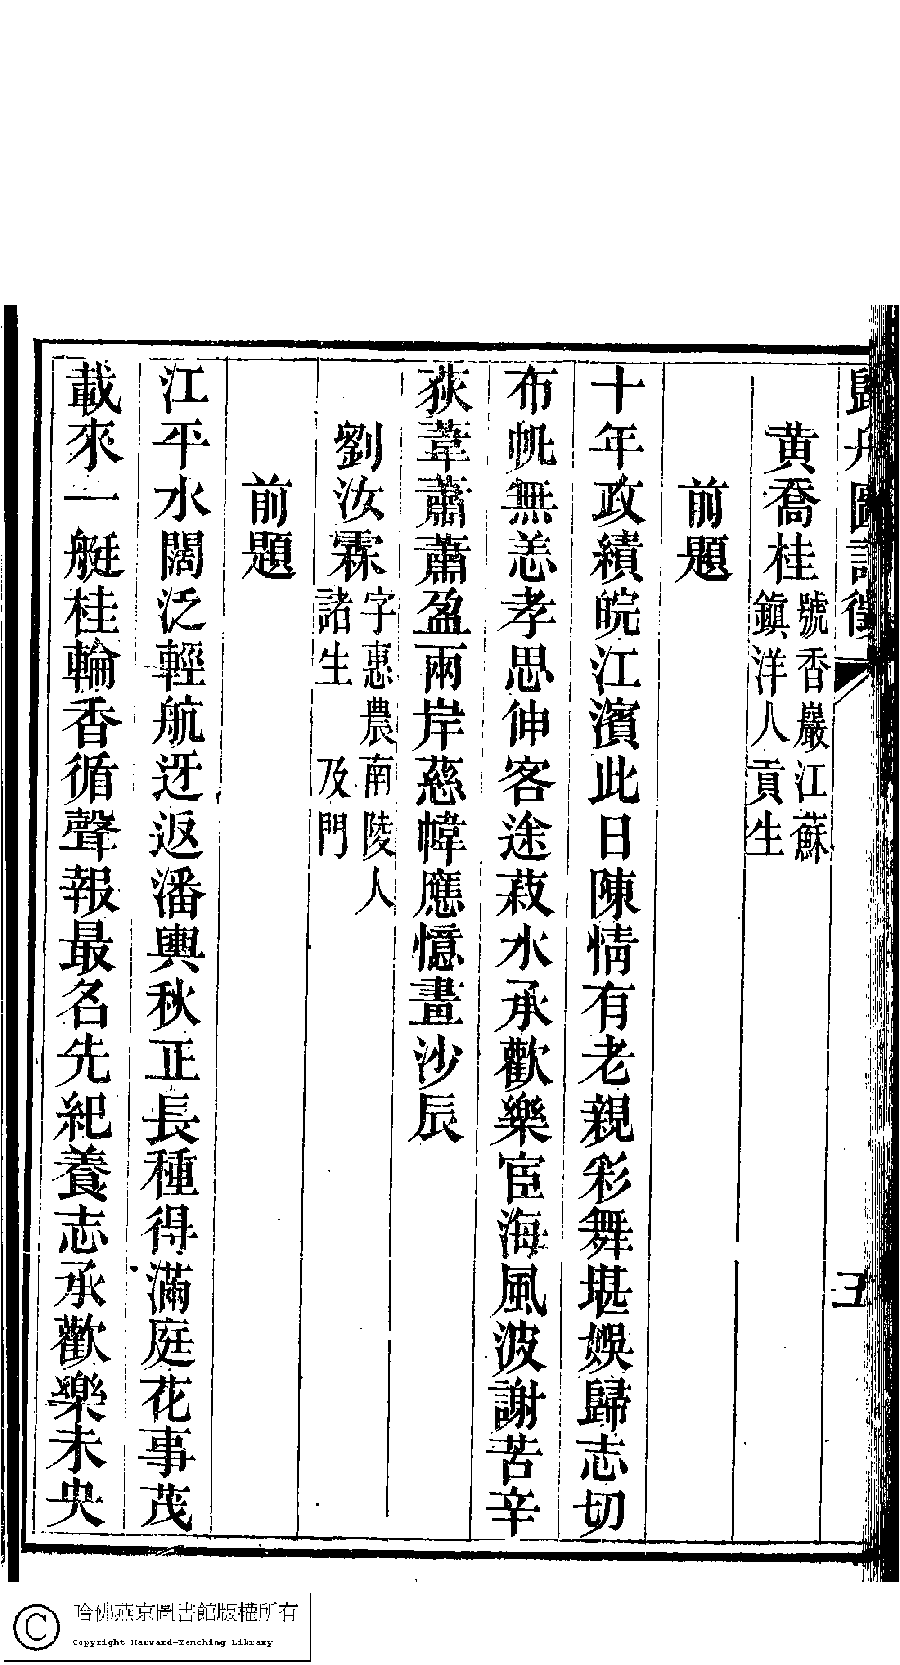 黄喬桂號香巖江蘇鎮洋人貢生
前題
十年政績皖江濱此日陳情有老親彩舞堪娛歸志切
布帆無恙孝思伸客途菽水承歡樂宦海風波謝苦辛
荻葦蕭蕭盈兩岸慈幃應憶畫沙辰
劉汝霖字惠農南陵人諸生 及門
前題
江平水闊泛輕航迓返潘輿秋正長種得滿庭花事茂
載來一艇桂輪香循聲報最名先紀養志承歡樂未央
哈佛燕京圖書館版權所有
Copyright Harvard-Yenching Library